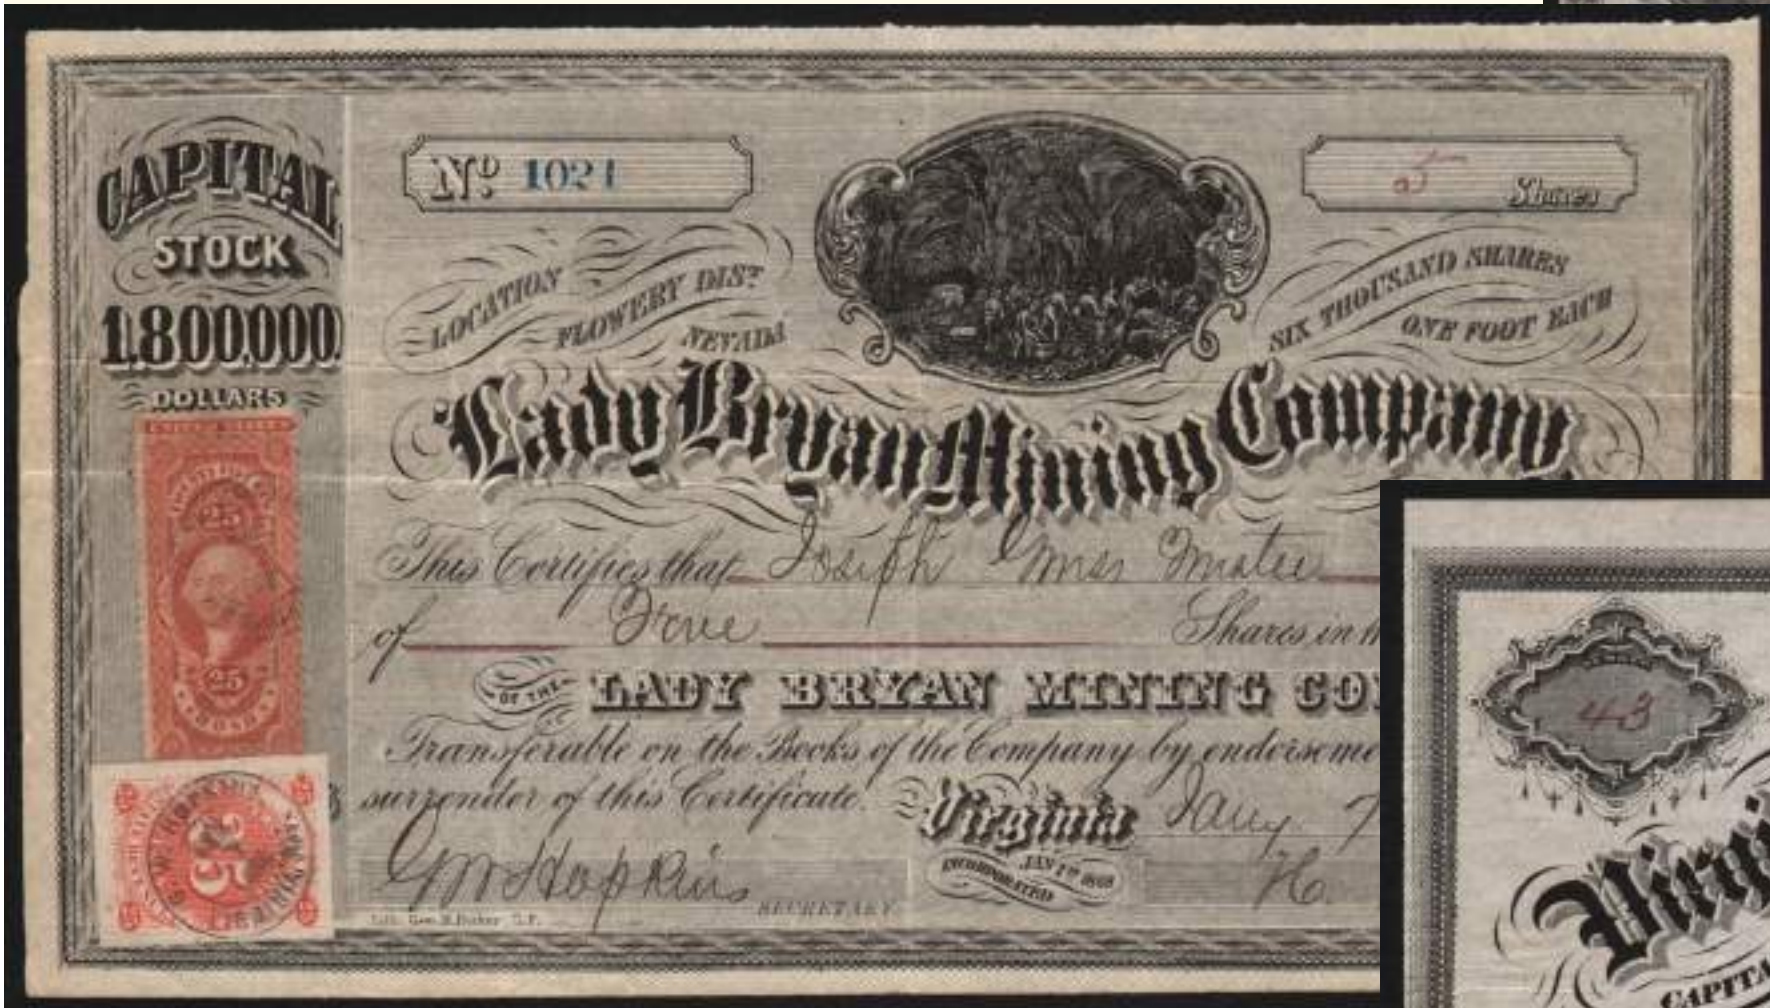 CAPITAL
STOCK
1.800.000.
DOLLARS
Nº 1021
5 Shares
LOCATION
FLOWERY DIST
NEVADA
SIX THOUSAND SHARES
ONE FOOT EACH
Lady Bryan Mining Company,
This Certifies that Joseph Trustee
of Five Shares in
OF THE LADY BRYAN MINING CO
Transferable on the Books of the Company by endorseme
surrender of this Certificate.
Virginia Jany. 7
INCORPORATED JAN 2 1868
GW Hopkins SECRETARY.
H.
25
25
25
43
Virgi
CAPITA